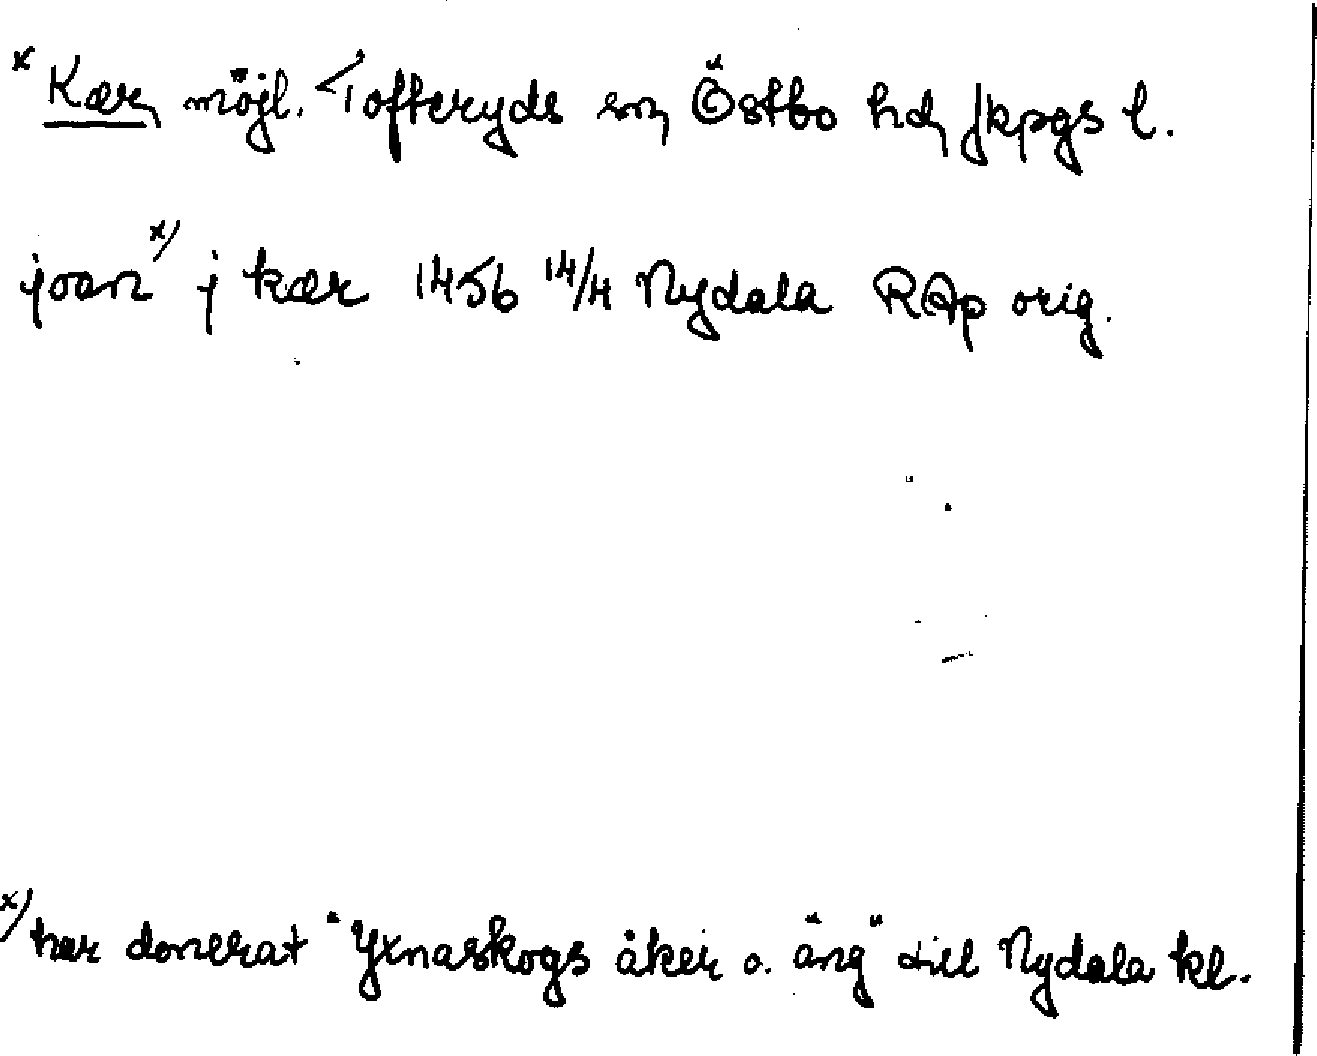 x Kær, möjl. Tofteryds sn, Östbo hd, Jkpgs l.
joan x) j kær 1456 14/4 Nydala RAp orig.
x) har donerat "Yxnaskogs åker o. äng" till Nydala kl.